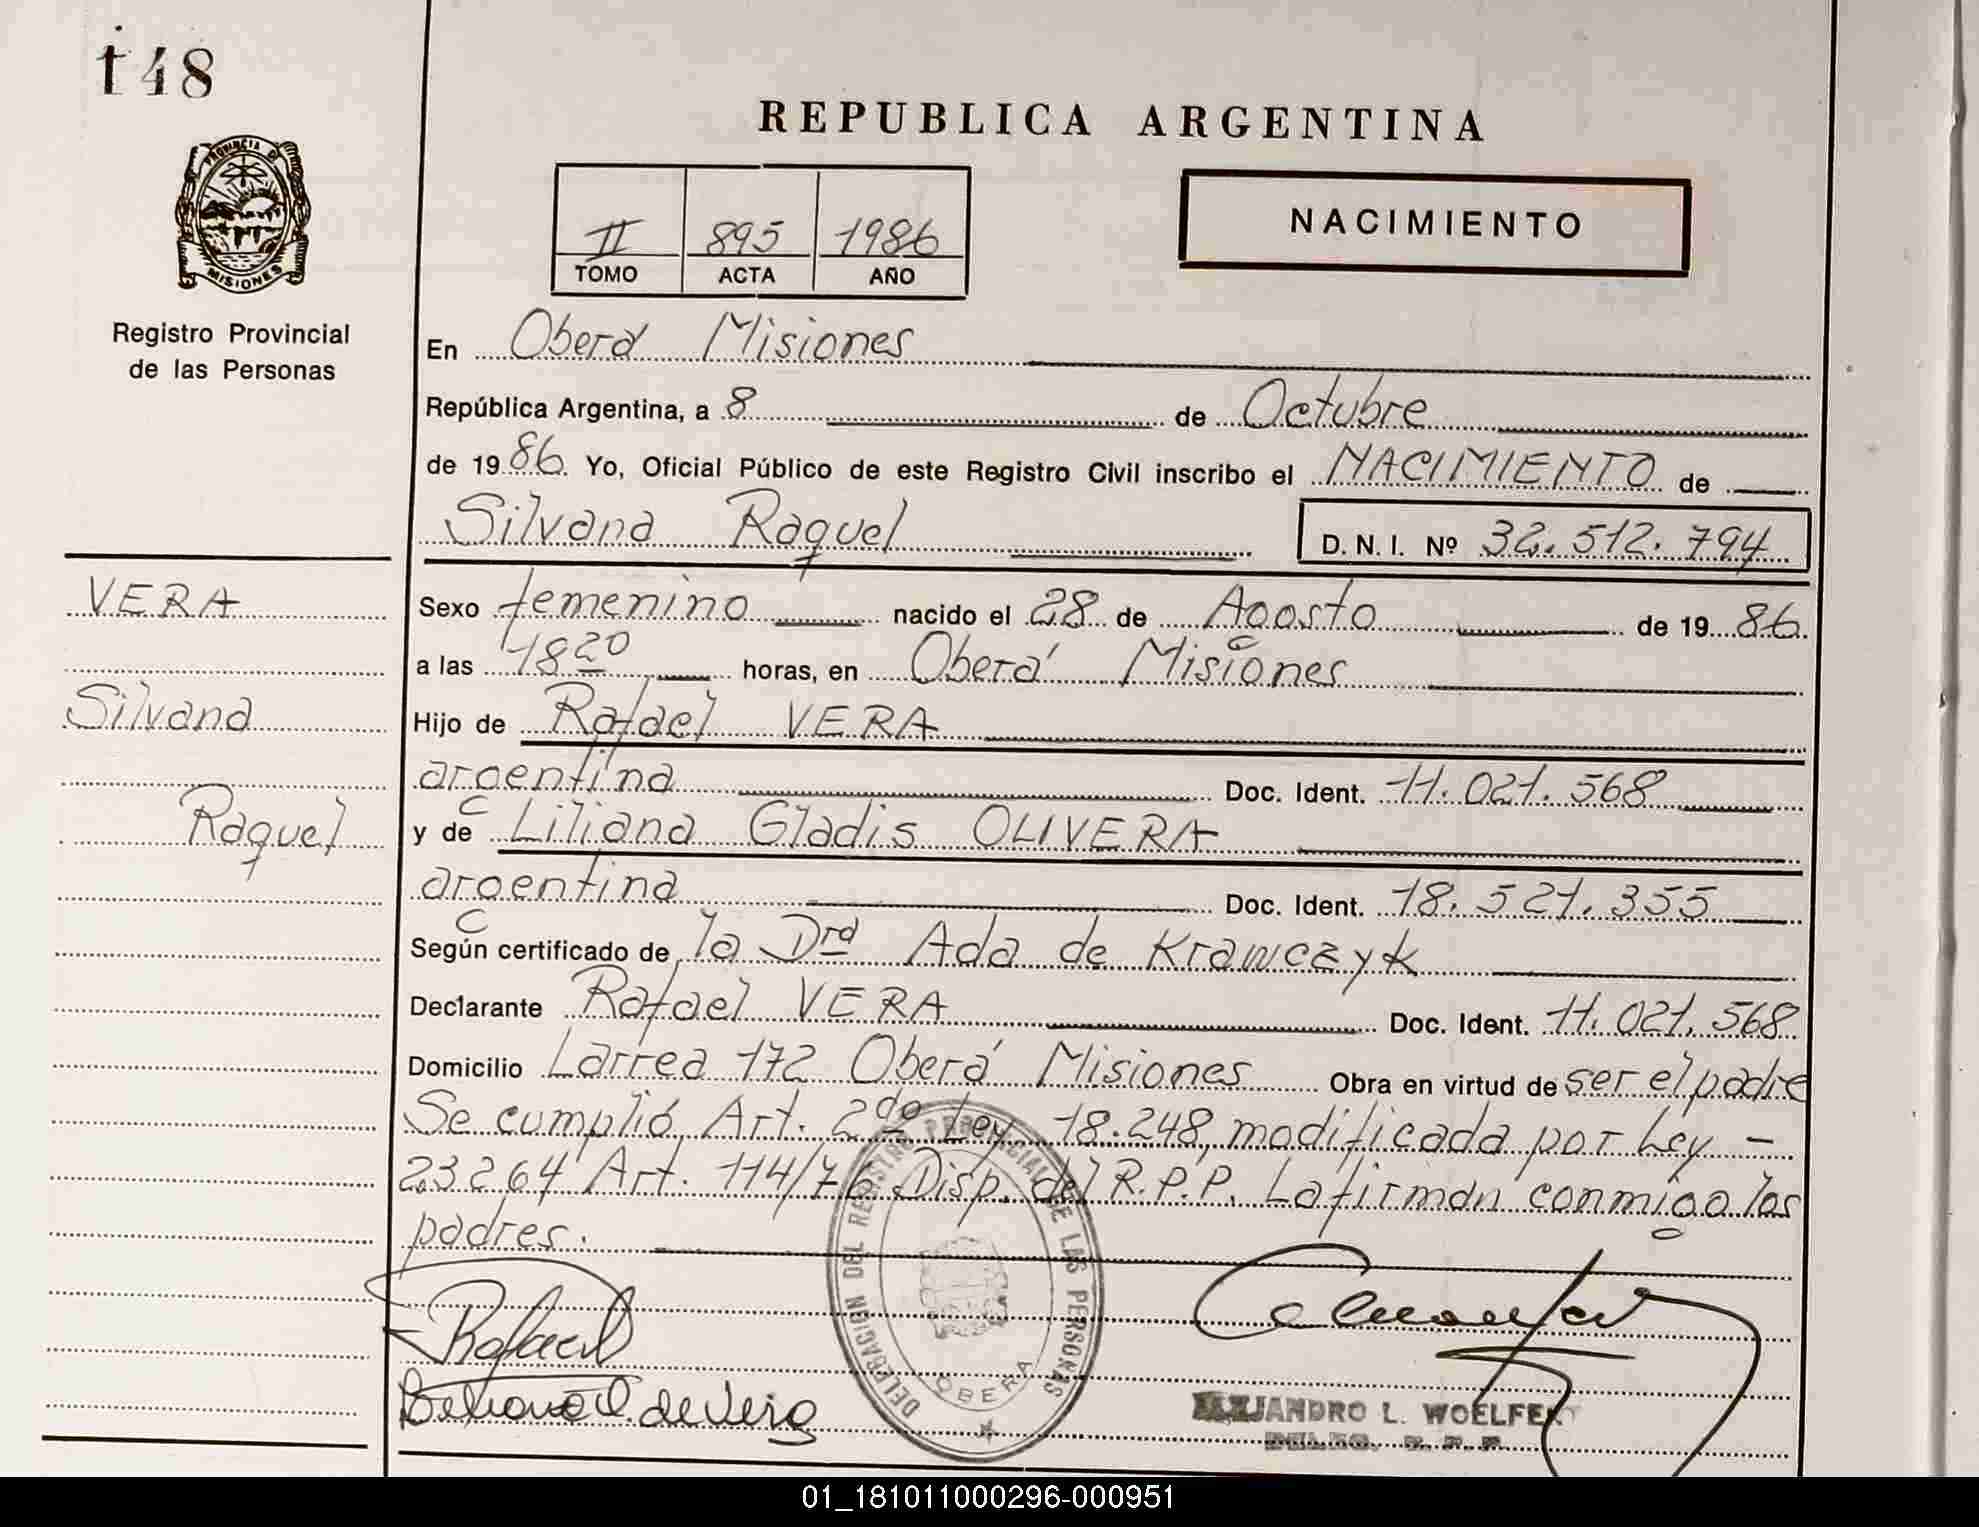 148
REPUBLICA ARGENTINA
PROVINCIA DE
MISIONES
II 895 1986
TOMO ACTA AÑO
NACIMIENTO
Registro Provincial
de las Personas
En Oberá Misiones
República Argentina, a 8 de Octubre
de 1986. Yo, Oficial Público de este Registro Civil inscribo el NACIMIENTO de
Silvana Raquel D. N. I. Nº 32.512.794
VERA
Silvana
Raquel
Sexo femenino nacido el 28 de Agosto de 1986.
a las 18 20 horas, en Oberá Misiones
Hijo de Rafael VERA
argentina Doc. Ident. 11.021.568
y de Liliana Gladis OLIVERA
argentina Doc. Ident. 18.521.355
Según certificado de la Dra Ada de Krawczyk
Declarante Rafael VERA Doc. Ident. 11.021.568
Domicilio Larrea 172 Oberá Misiones Obra en virtud de ser el padre
Se cumplió Art. 2do Ley 18.248, modificada por Ley -
23264 Art. 114/76 Disp. del R.P.P. La firman conmigo los
padres.
DELEGACION DEL REGISTRO PROVINCIAL DE LAS PERSONAS
OBERA
Rafael
de Vera
ALEJANDRO L. WOELFERT
DELEG. R. P. P.
01_181011000296-000951